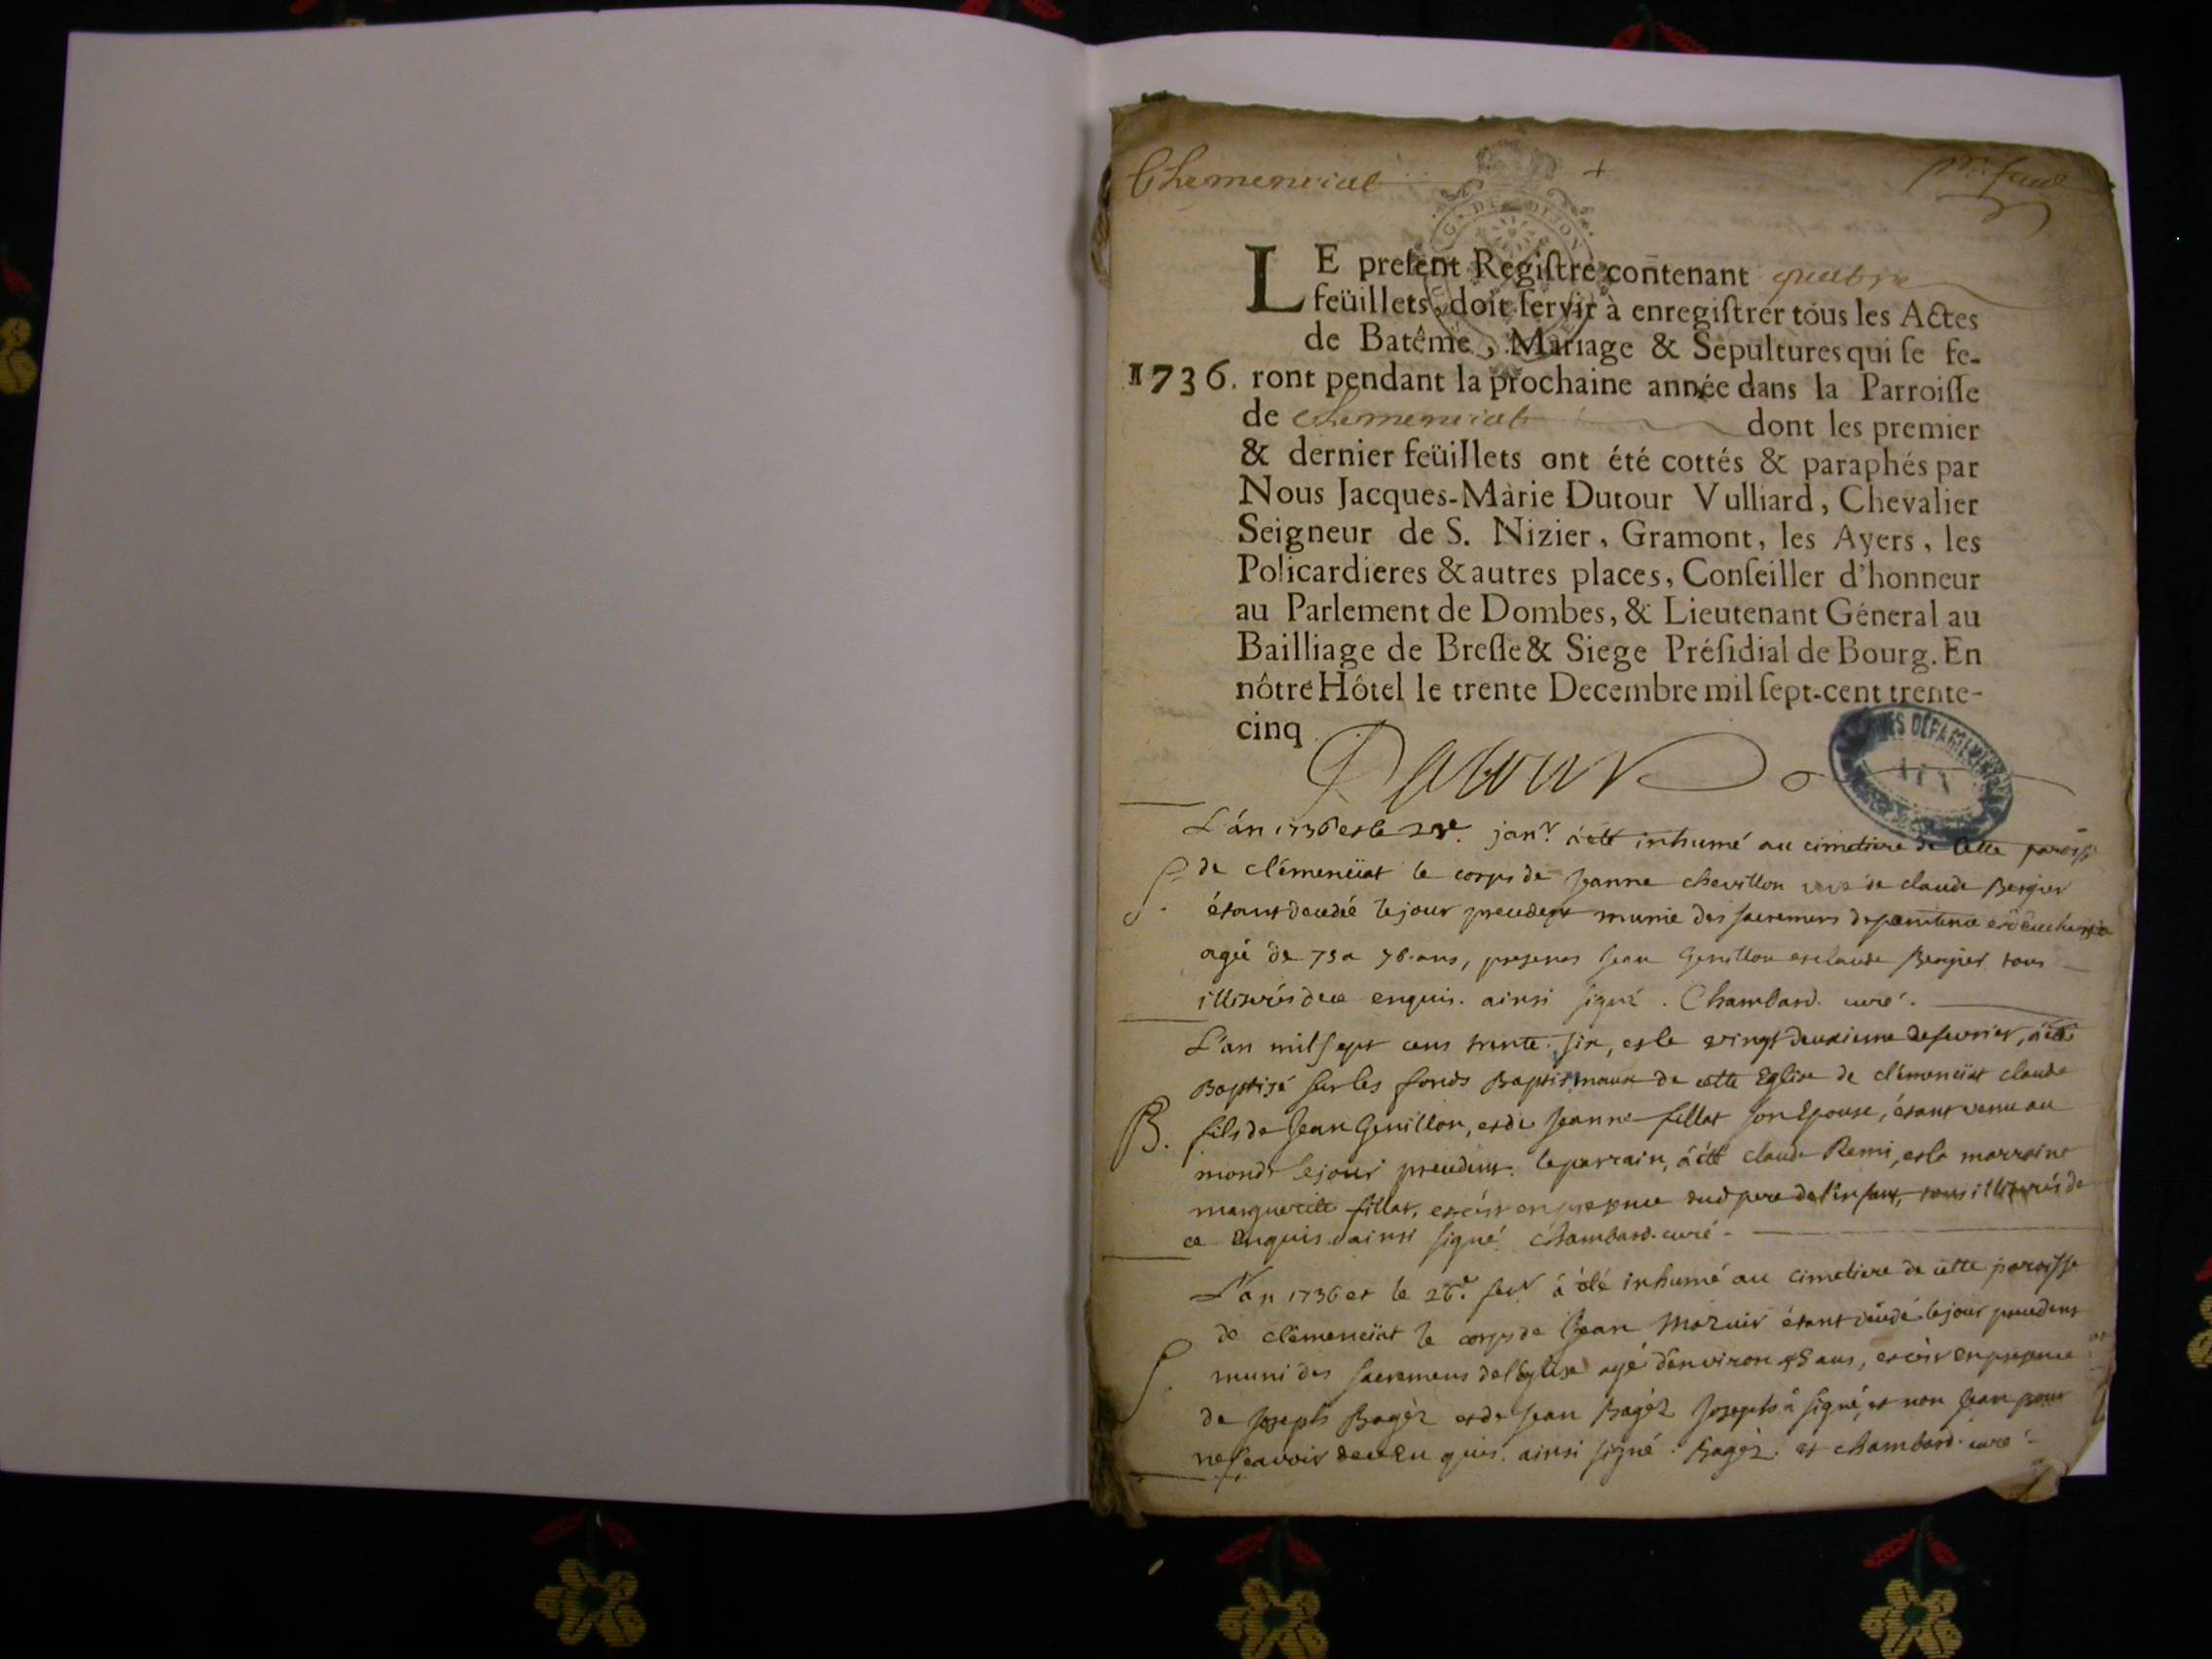 Chemencial +
G. DE DIJON
LE preſent Regiſtre contenant quatre
feüillets, doit ſervir à enregiſtrer tous les Actes
de Batême, Mariage & Sepultures qui ſe fe-
1736. ront pendant la prochaine année dans la Parroiſſe
de Chemenciat dont les premier
& dernier feüillets ont été cottés & paraphés par
Nous Jacques-Marie Dutour Vulliard, Chevalier
Seigneur de S. Nizier, Gramont, les Ayers, les
Policardieres & autres places, Conſeiller d'honneur
au Parlement de Dombes, & Lieutenant Géneral au
Bailliage de Breſſe & Siege Préſidial de Bourg. En
nôtre Hôtel le trente Decembre mil ſept-cent trente-
cinq
Dutour
DEPARTEMENTALES
L'an 1736 et le janr. à été inhumé au cimetiere de cette paroisse
S. de clémenciat le corps de Jeanne chevillon veve de claude Bergier
étant decedé le jour precedent munie des sacremens de penitence et d'eucharistie
agée de 75 a 76 ans, presens Jean Genillon et claude Bergier tous
illiterés de ce enquis. ainsi signé. Chambard. curé.
L'an mil sept cens trente six, et le vingt deuxieme de fevrier, à été
Baptisé sur les fonds Baptismaux de cette Eglise de clémenciat claude
B. fils de Jean Genillon, et de Jeanne fillat son Epouse, étant venu au
monde le jour precedent. le parrain, à été claude Remi, et la marraine
marguerite fillat, et ce en presence dud pere de l'enfant, tous illiterés de
ce Enquis. ainsi signé chambard. curé
L'an 1736 et le 26e. fevr à été inhumé au cimetiere de cette paroisse
de clémenciat le corps de Jean Mozuir étant decedé le jour precedent
S. muni des sacremens de l'Eglise agé d'environ ans, et ce en presence
de Joseph Bagéz et de Jean Bagéz Joseph à signé, et non Jean pour
ne scavoir de ce Enquis. ainsi signé. Bagéz. et chambard. curé